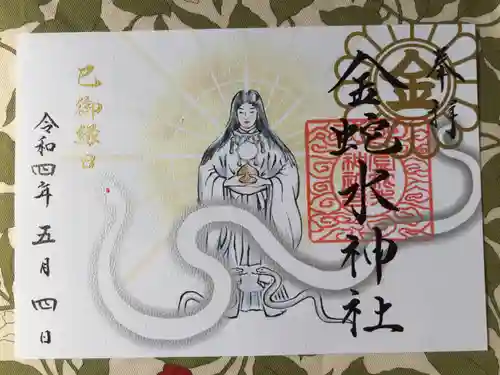 奉拝
金
金蛇水神社
巳御縁日
令和四年五月四日